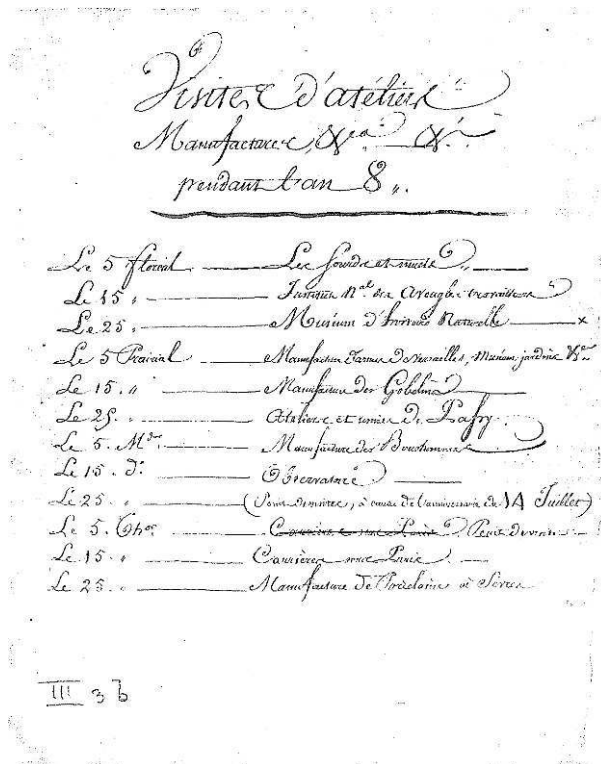 Visites d'atéliers
Manufactures, &ca. &a.
pendant l'an 8 ,,.
Le 5 floréal Les Sourds et muets
Le 15 " Institut N.al des Aveugles travailleurs
Le 25 " Muséum d'histoire Naturelle x
Le 5 Prairial Manufacture d'armes de Versailles, Muséum, jardins &ca
Le 15 " Manufacture des Gobelins
Le 25 " Atéliers et usines de
Le 5. M.dor Manufacture des
Le 15. d.o Observatoire
Le 25 " ( à cause de l'anniversaire du 14 Juillet)
Le 5. Th.or Carrières sous Paris
Le 15 " Carrières sous Paris
Le 25 " Manufacture de Porcelaine à Sèvres
III 3 b